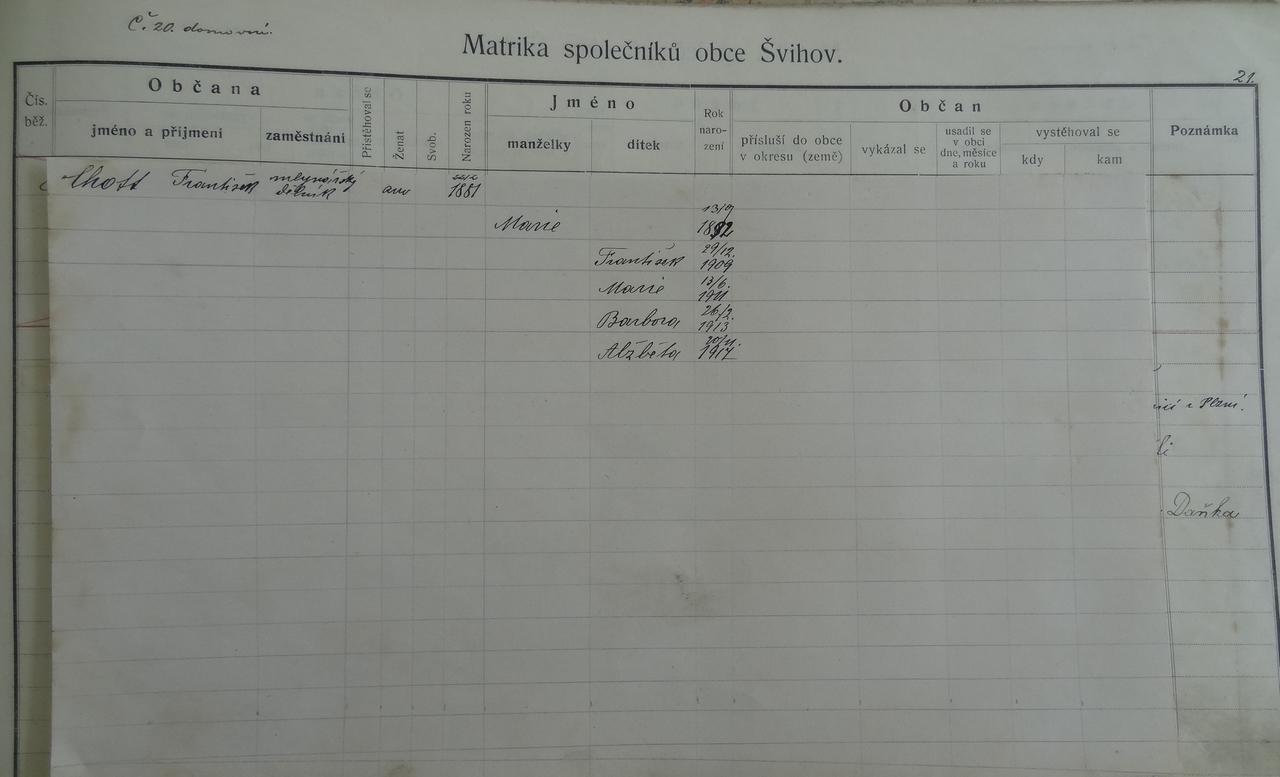 Č. 20. domovní.
Matrika společníků obce Švihov.
21.
Čís. běž.
Občana
jméno a příjmení
zaměstnání
Přistěhoval se
Ženat
Svob.
Narozen roku
Jméno
manželky
dítek
Rok naro-zení
Občan
přísluší do obce v okresu (země)
vykázal se
usadil se v obci dne, měsíce a roku
vystěhoval se
kdy
kam
Poznámka
Chott František
mlynářský
dělník
ano
1881
Marie
13/9
1892
František
29/12.
1909
Marie
13/6.
1911
Barbora
26/2.
1913
Alžběta
20/11.
1917
v Plzni.
Daňka